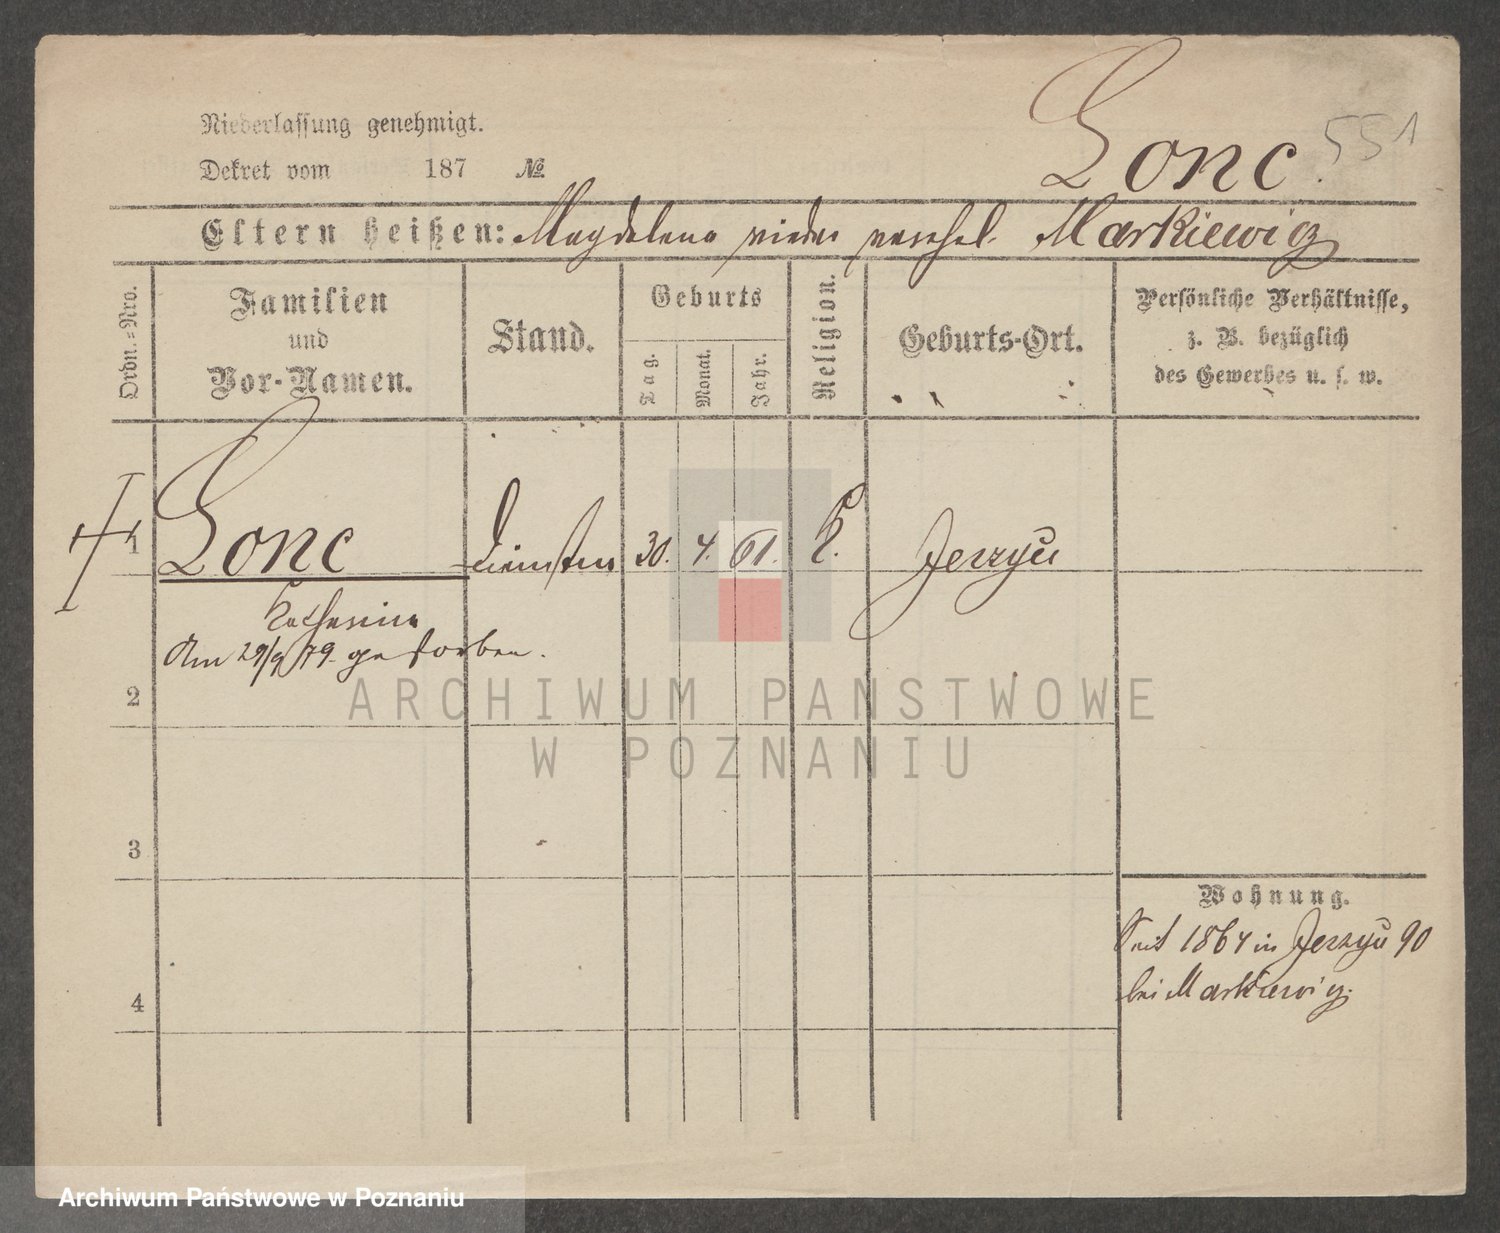 Niederlassung genehmigt.
Dekret vom 187 №
Lonc.
551
Eltern heißen: Magdalena wieder verehel. Markiewicz
Ordn.-Nro.
Familien
und
Vor-Namen.
Stand.
Geburts
Tag.
Monat.
Jahr.
Religion.
Geburts-Ort.
Persönliche Verhältnisse,
z. B. bezüglich
des Gewerbes u. s. w.
1 Lonc 30. 4. 61. k. Jerzyce
Katharina
Am 29/9 79. gestorben.
2
3
4
Wohnung.
Seit 1864 in Jerzyce 90
bei Markiewicz.
ARCHIWUM PANSTWOWE
W POZNANIU
Archiwum Państwowe w Poznaniu